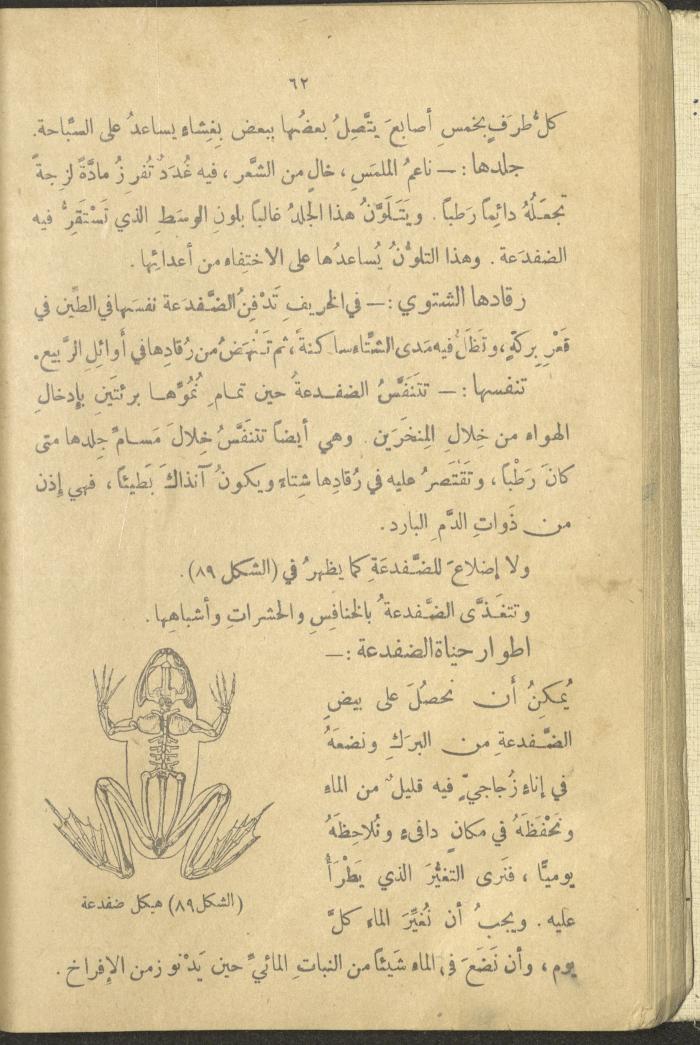 ٦٢
كلُّ طرَفٍ بخمسِ أصابعَ يتَّصِلُ بعضُها ببعض بِغِشاءٍ يساعدُ على السِّباحة.
جلدها :ـــ ناعمُ الملمَسِ ، خالٍ من الشَّعر ، فيه غُدَدٌ تُفرزُ مادَّةً لزِجةً
تجعَلُهُ دائِماً رَطباً . ويَتَلَوَّنُ هذا الجلدُ غالباً بلونِ الوسَطِ الذي تَسْتَقِرُّ فيه
الضفدَعة . وهذا التلوُّنُ يُساعدُها على الاختِفاء من أعدائِها .
رقادها الشتوي :ـــ في الخريفِ تَدْفِنُ الضَّفدعة نفسَها في الطِّين في
قَعْرِ بِركَةٍ ، وتَظَلُّ فيه مَدى الشتاء ساكنةً ، ثم تَنْهَضُ من رُقادِها في أوائلِ الرَّبيع .
تنفسها :ـــ تتَنَفَّسُ الضفدعةُ حين تمامِ نُمُوِّها برئتَينِ بإِدخالِ
الهواء من خِلالِ المِنخَرَين . وهي أيضاً تتنَفَّسُ خِلالَ مَسامِّ جِلدها متى
كانَ رَطْباً ، وتَقْتَصرُ عليه في رُقادِها شِتاء ويكونُ آنذاكَ بَطيئاً ، فهي إذن
من ذَواتِ الدَّمِ البارد .
ولا إضلاعَ للضَّفدعَةِ كما يظهرُ في (الشكل ٨٩) .
وتتغَذَّى الضَّفدعةُ بالخنافِسِ والحشراتِ وأشباهِها .
اطوار حياة الضفدعة :ـــ
يُمكِنُ أَن نحصُلَ على بيضِ
الضَّفدعةِ من البركِ ونضعَهُ
في إناءٍ زُجاجيٍّ فيه قليلٌ من الماء
ونَحْفَظَهُ في مكانٍ دافىء ونُلاحِظَهُ
يوميًّا ، فنَرى التغيُّرَ الذي يَطْرَأُ
عليه . ويجبُ أن نُغَيِّرَ الماء كلَّ
يوم ، وأن نَضَعَ في الماء شَيئاً من النباتِ المائيِّ حين يَدْنو زمن الإِفراخ .
(الشكل ٨٩) هيكل ضفدعة